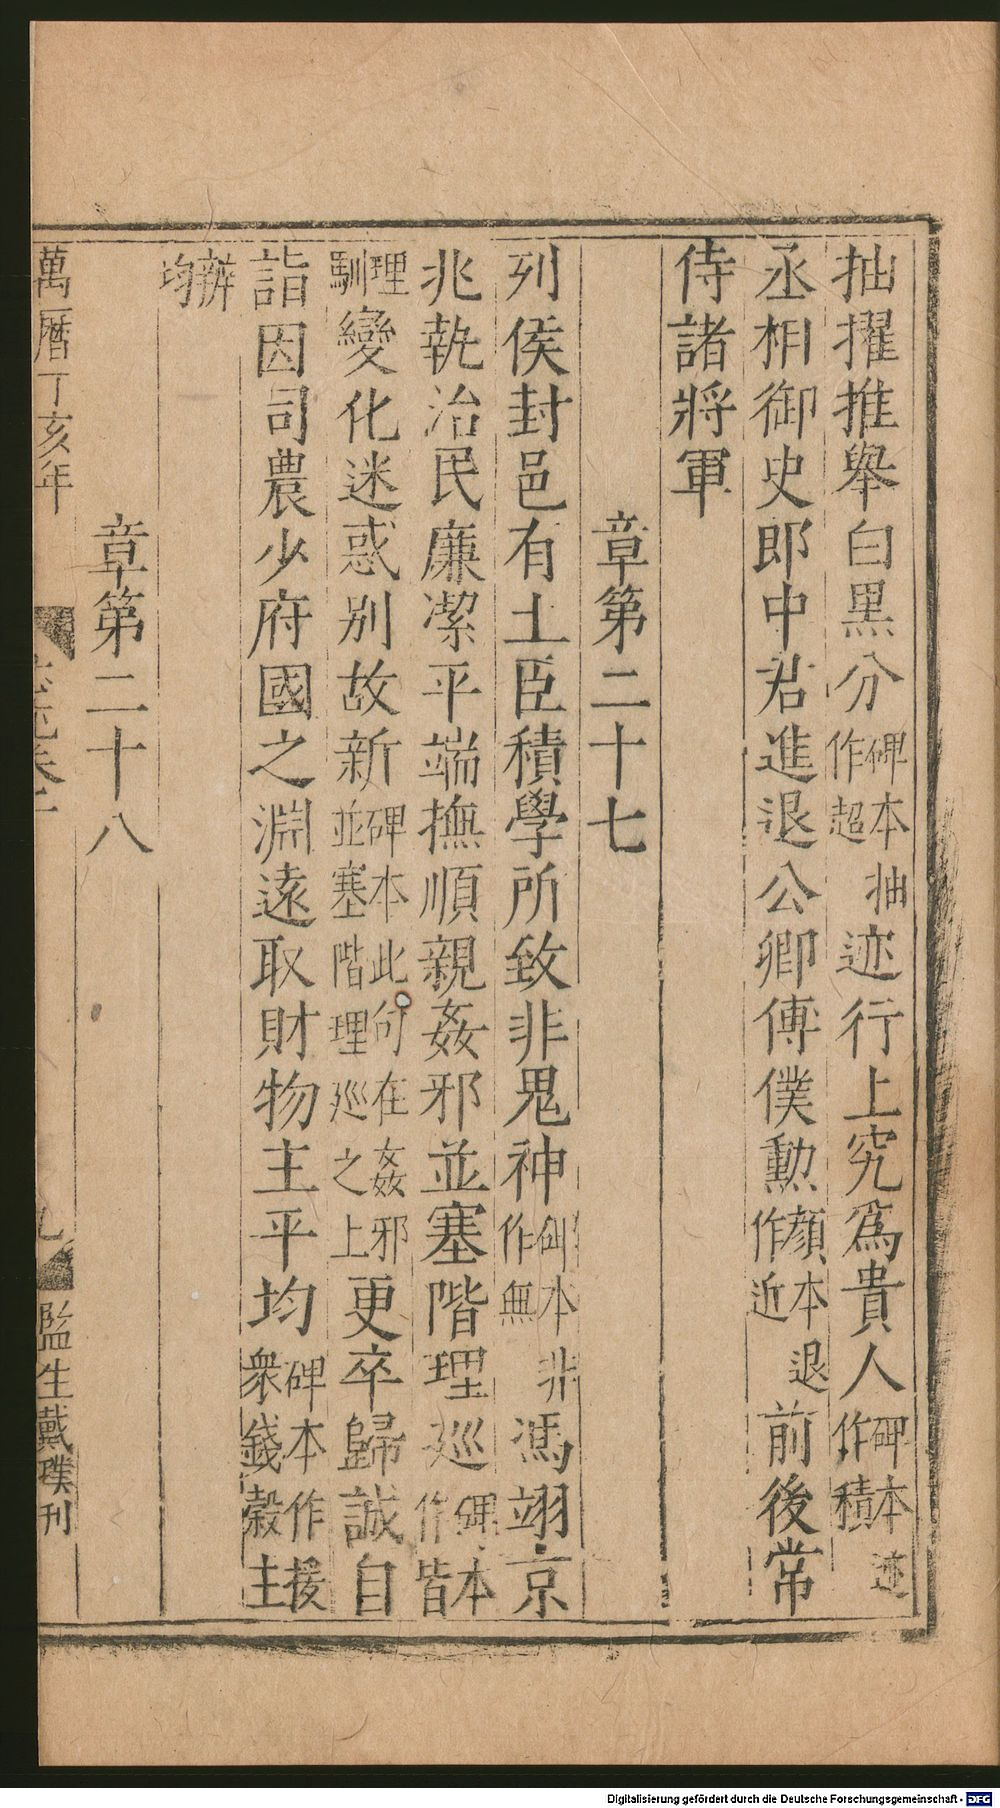 抽擢推舉白黑分碑本抽作超迹行上究為貴人碑本迹作積
丞相御史郎中君進退公卿傅僕勲顏本退作近前後常
侍諸將軍
章第二十七
列侯封邑有土臣積學所致非鬼神碑本非作無馮翊京
兆執治民廉潔平端撫順親姦邪並塞階理巡碑本作皆
理馴變化迷惑別故新碑本此句在姦邪並塞階理巡之上更卒歸誠自
詣因司農少府國之淵遠取財物主平均碑本作援衆錢穀主
辨均
章第二十八
萬曆丁亥年
監生戴璞刊
Digitalisierung gefördert durch die Deutsche Forschungsgemeinschaft - DFG